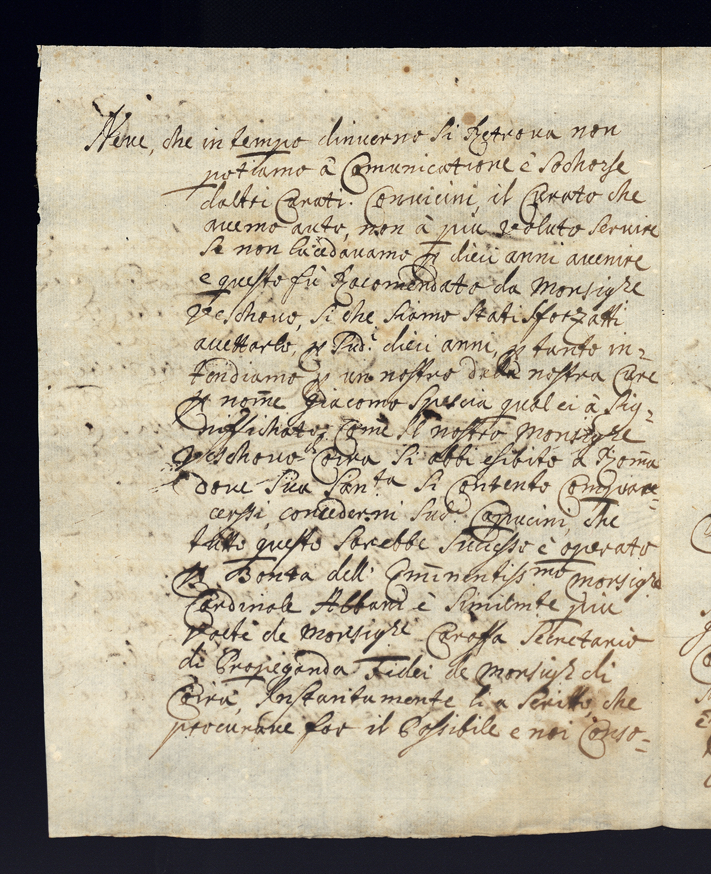 Neve, che in tempo dinverno si Retrova non
potiamo à Comunicatione è Sochorse
daltri Curati. Convicini, il Curato che
avemo auto, non à piu voluto servire
Se non lucedavamo p dieci anni avenire
e questo fù Racomendato da Monsigre
Veschovo, si che siamo stati sforzatti
acettarlo, p Sud.i dieci anni, p tanto in=
tendiamo p un nostro della nostra Cure
p nome Giacomo Spescia qual ci à Sig=
niffichato, Come Il nostro Monsigre
Veschovo Coira si abbi esibito à Roma
dove Sua San.ta Si Contento Compiace=
cerssi, concederni Sud.i Capucini, che
tutto questo sarebbe Sucesso è operato
p Bonta dell' Eminentissmo Monsigre
Cardinale Albani è Similmte piu
volte de Monsigre Caraffa Secretario
di Propaganda Fidei de Monsigre di
Coira, Instantamente li a Scritto, che
procurare for il Possibile e noi Conso=